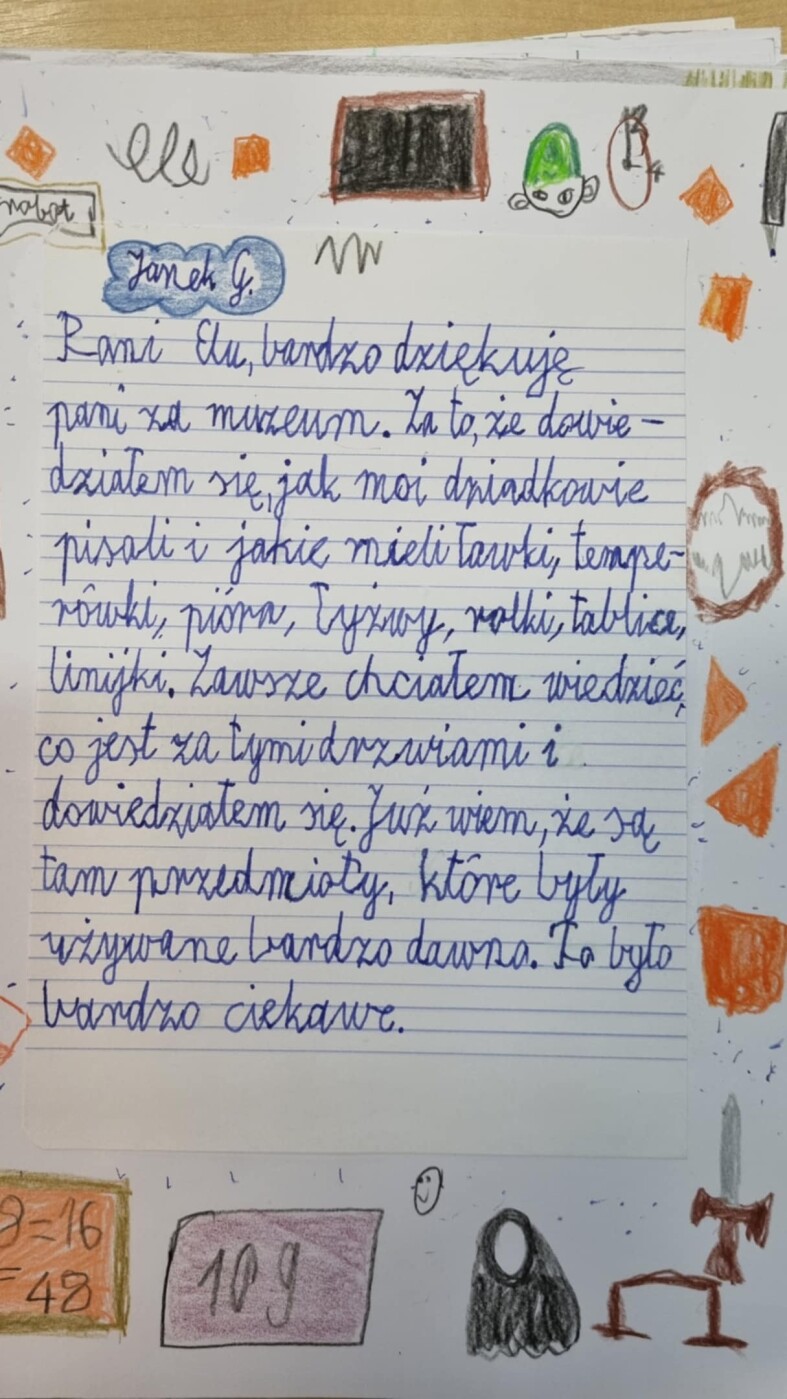 robot
Janek G.
Pani Elu, bardzo dziękuję
pani za muzeum. Za to, że dowie-
działem się, jak moi dziadkowie
pisali i jakie mieli ławki, tempe-
rówki, pióra, łyżwy, rolki, tablice,
linijki. Zawsze chciałem wiedzieć,
co jest za tymi drzwiami i
dowiedziałem się. Już wiem, że są
tam przedmioty, które były
używane bardzo dawno. To było
bardzo ciekawe.
8=16
=48
10 g